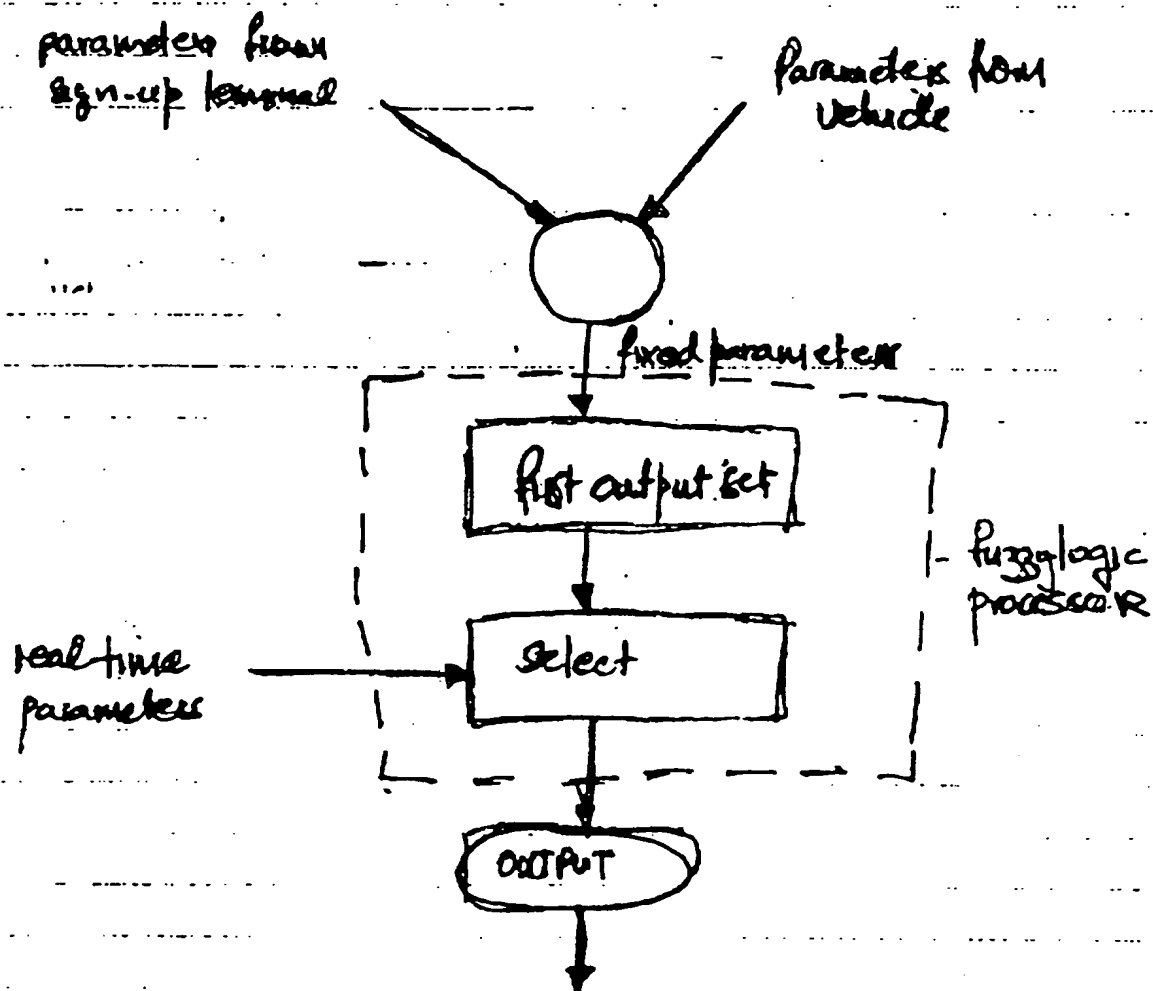 parameters from
sign-up terminal
Parameters from
vehicle
fixed parameters
first output set
fuzzy logic
processor
select
real time
parameters
OUTPUT